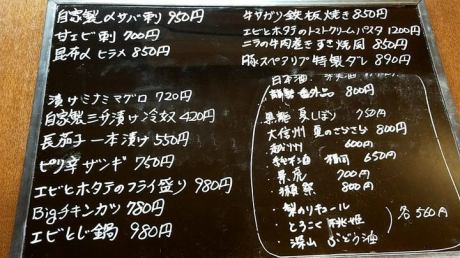 自家製〆サバ刺 950円
甘エビ刺 700円
昆布〆ヒラメ 850円
漬けミナミマグロ 720円
自家製三升漬け冷奴 420円
長茄子一本漬け 550円
ピリ辛ザンギ 750円
エビとホタテのフライ盛り 980円
Bigチキンカツ 780円
エビとじ鍋 980円
牛サガリ鉄板焼き 850円
エビとホタテのトマトクリームパスタ 1200円
ニラの牛肉巻きすき焼風 850円
豚スペアリブ特製ダレ 890円
日本酒
800円
夏しぼり 750円
大信州 夏のさらさら 800円
越州 600円
純米酒 650円
700円
獺祭 800円
・梨のリキュール
・とろこく桃姫
・深山ぶどう酒
各560円